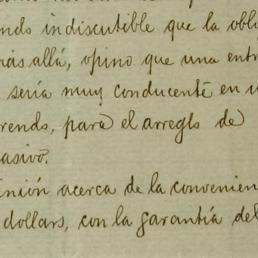 endo indiscutible que la obli
más allá, opino que una entr
sería muy conducente en
rendo, para el arreglo de
asivo.
inión acerca de la convenien
dollars, con la garantía del